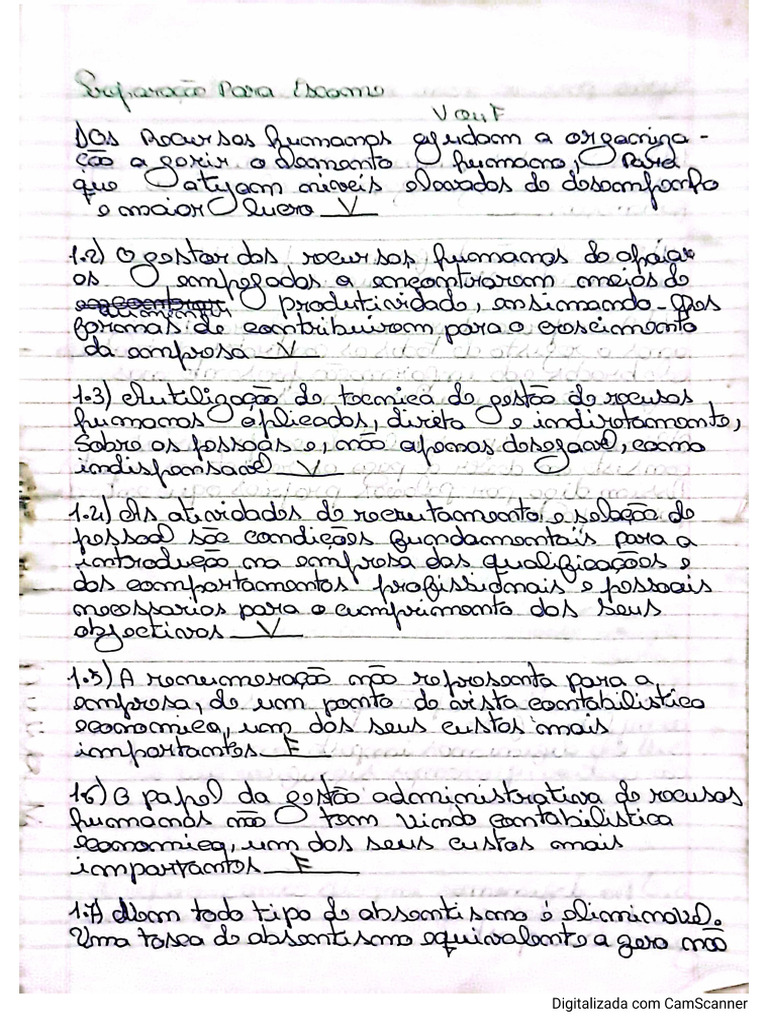 Preparação Para Exame
V ou F
1) Os Recursos humanos ajudam a organiza-
ção a gerir o elemento humano, Para
que atijam niveis elevados de desempenho
e maior lucro V
1.2) O gestor dos recursos humanos de apoiar
os empegados a encontrarem meios de
aumentar produtividade, ensinando-os
formas de contribuirem para o crescimento
da empresa V
1.3) A utilização de tecnica de gestão de recusos
humanos aplicados, direta e indiretamente,
Sobre os pessoas e, não apenas desejavel, como
indispensavel V
1.4) As atividades de recrutamento e seleção de
pessoal são condições fundamentais para a
introdução na empresa das qualificações e
dos comportamentos profissionais e pessoais
necessarios para o cumprimento dos seus
objectivos V
1.5) A remuneração não representa para a
empresa, de um ponto de vista contabilistico
economica, um dos seus custos mais
importantes F
1.6) O papel da gestão administrativa de recusos
humanos não tem vindo contabilistica
economica, um dos seus custos mais
importantes F
1.7) Nem todo tipo de absentismo é eliminavel.
Uma taxa de absentismo equivalente a zero não
Digitalizada com CamScanner